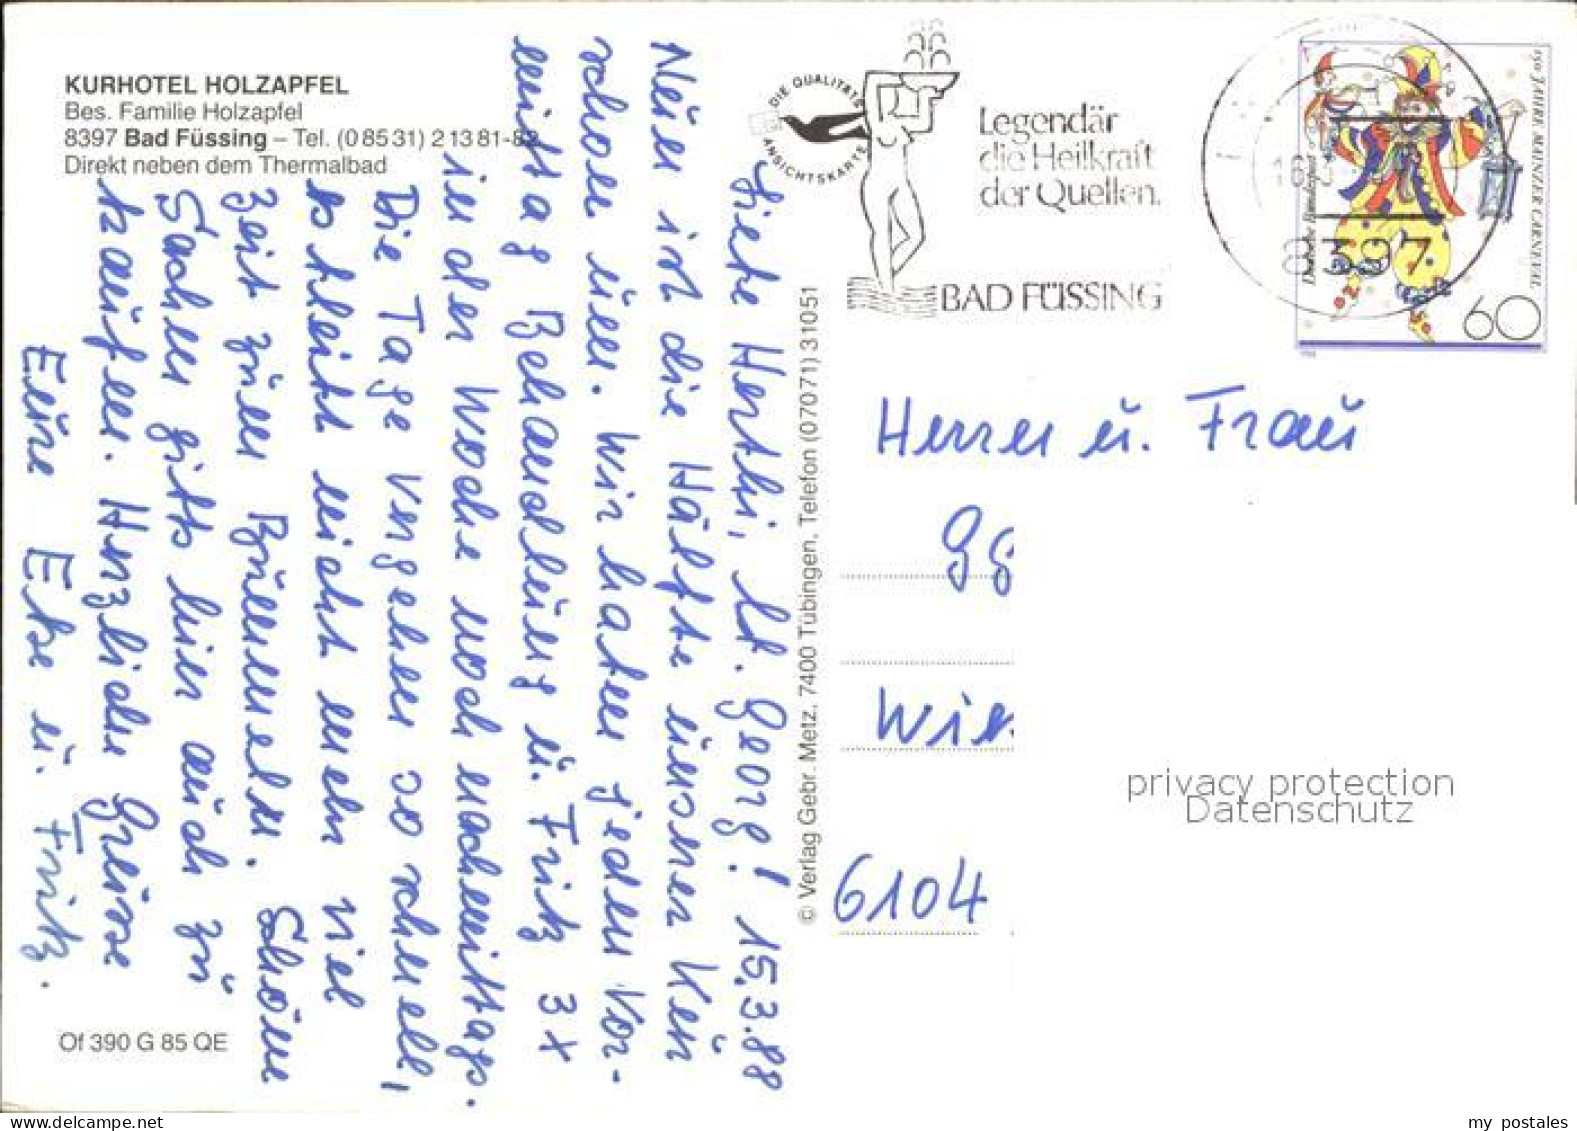 KURHOTEL HOLZAPFEL
Bes. Familie Holzapfel
8397 Bad Füssing – Tel. (0 85 31) 2 13 81-82
Direkt neben dem Thermalbad
Liebe Herthi, lb. Georg! 15.3.88
Nun ist die Hälfte unserer Kur
schon um. Wir haben jeden Vor-
mittag Behandlung u. Fritz 3x
in der Woche noch nachmittags.
Die Tage vergehen so schnell,
es bleibt nicht mehr viel
Zeit zum Bummeln. Schöne
Sachen gibts hier auch zu
kaufen. Herzliche Grüsse
Eure Elke u. Fritz.
Of 390 G 85 QE
© Verlag Gebr. Metz, 7400 Tübingen, Telefon (0 70 71) 3 10 51
DIE QUALITÄTS
ANSICHTSKARTE
Legendär
die Heilkraft
der Quellen.
BAD FÜSSING
8397
150 JAHRE MAINZER CARNEVAL
Deutsche Bundespost
60
Herrn u. Frau
Wie
6104
privacy protection
Datenschutz
my postales